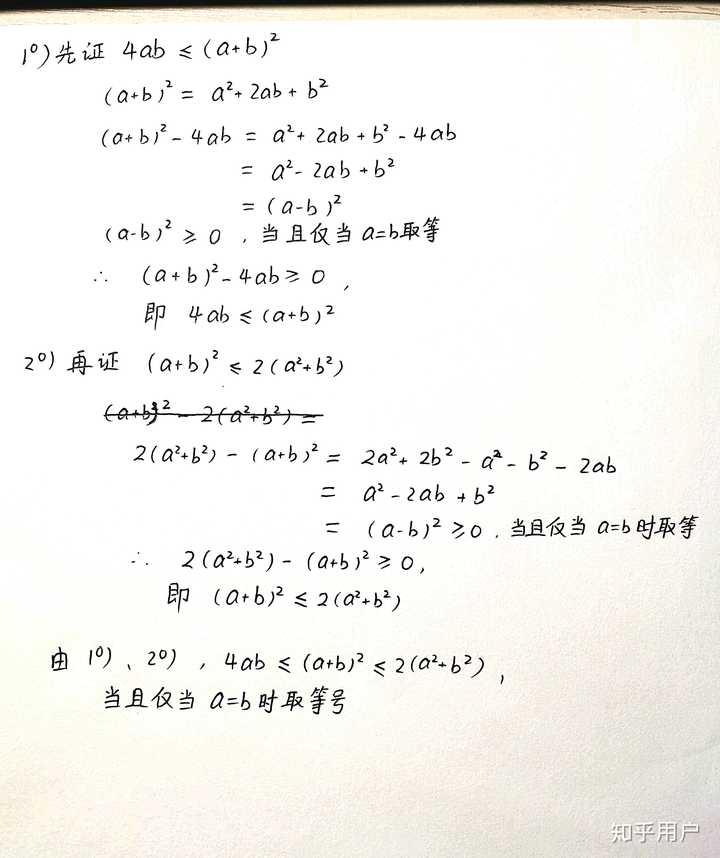 1⁰) 先证 4ab ≤ (a+b)²
(a+b)² = a²+2ab+b²
(a+b)²-4ab = a²+2ab+b²-4ab
= a²-2ab+b²
= (a-b)²
(a-b)² ≥ 0 , 当且仅当 a=b取等
∴ (a+b)²-4ab ≥ 0 ,
即 4ab ≤ (a+b)²
2⁰) 再证 (a+b)² ≤ 2(a²+b²)
(a+b)² - 2(a²+b²) =
2(a²+b²) - (a+b)² = 2a²+2b²-a²-b²-2ab
= a²-2ab+b²
= (a-b)² ≥0 , 当且仅当 a=b时取等
∴ 2(a²+b²)-(a+b)² ≥ 0,
即 (a+b)² ≤ 2(a²+b²)
由 1⁰)、2⁰) , 4ab ≤ (a+b)² ≤ 2(a²+b²) ,
当且仅当 a=b时取等号
知乎用户